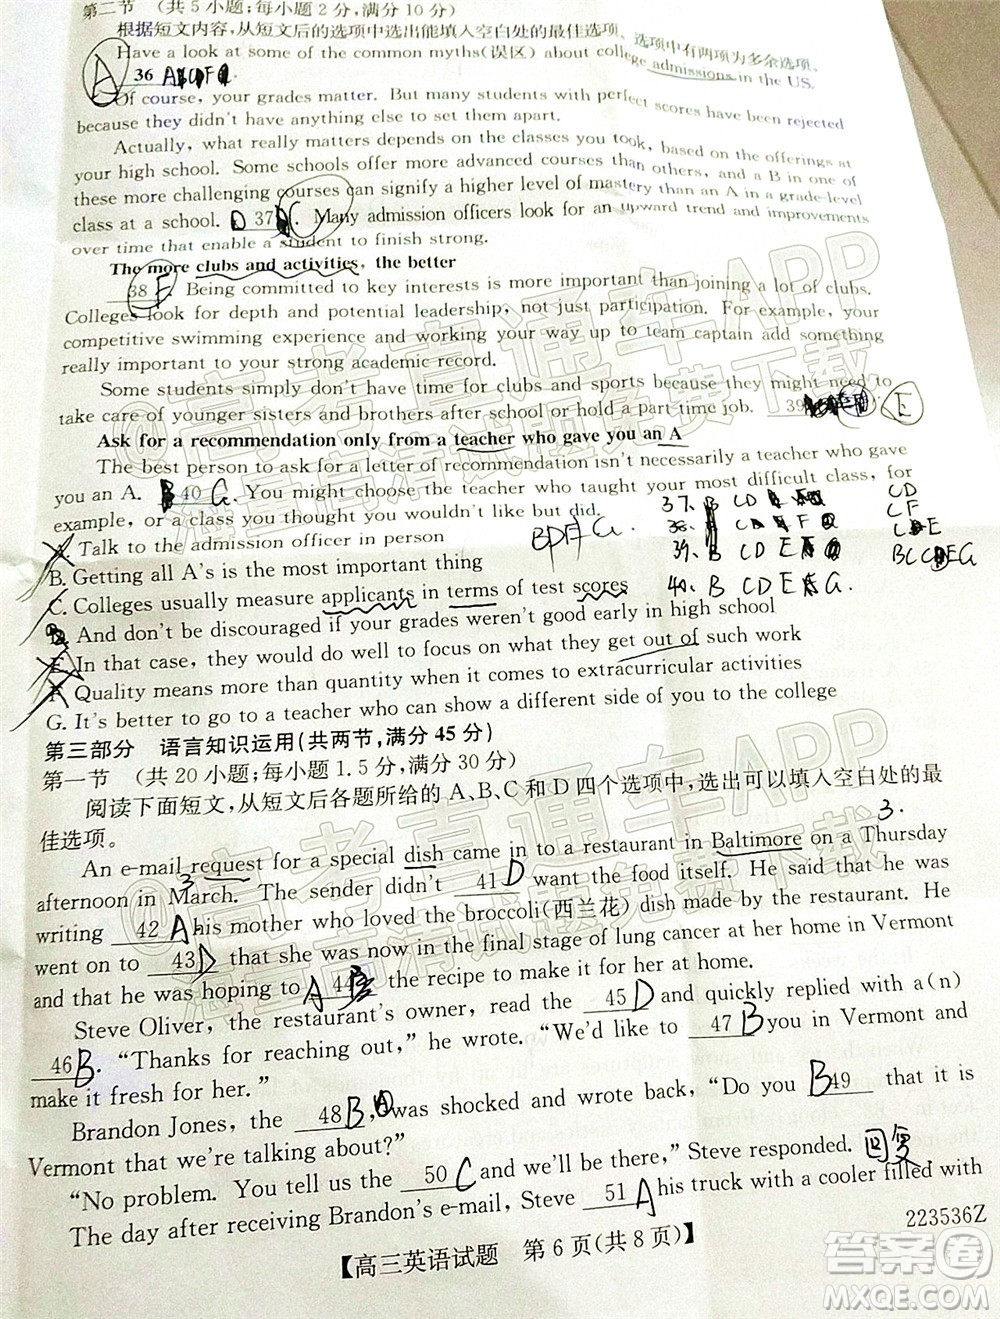 第二节 (共5小题;每小题2分,满分10分)
根据短文内容,从短文后的选项中选出能填入空白处的最佳选项。选项中有两项为多余选项。
Have a look at some of the common myths(误区) about college admissions in the US.
A 36
Of course, your grades matter. But many students with perfect scores have been rejected
because they didn't have anything else to set them apart.
Actually, what really matters depends on the classes you took, based on the offerings at
your high school. Some schools offer more advanced courses than others, and a B in one of
these more challenging courses can signify a higher level of mastery than an A in a grade-level
class at a school. D 37 C. Many admission officers look for an upward trend and improvements
over time that enable a student to finish strong.
The more clubs and activities, the better
38 F. Being committed to key interests is more important than joining a lot of clubs.
Colleges look for depth and potential leadership, not just participation. For example, your
competitive swimming experience and working your way up to team captain add something
really important to your strong academic record.
Some students simply don't have time for clubs and sports because they might need to
take care of younger sisters and brothers after school or hold a part-time job. 39 E
Ask for a recommendation only from a teacher who gave you an A
The best person to ask for a letter of recommendation isn't necessarily a teacher who gave
you an A. 40 G. You might choose the teacher who taught your most difficult class, for
example, or a class you thought you wouldn't like but did.
37. B CD
38. CD F
39. B CD E
40. B CD E G.
CD
CF
A. Talk to the admission officer in person
B. Getting all A's is the most important thing
C. Colleges usually measure applicants in terms of test scores
D. And don't be discouraged if your grades weren't good early in high school
E. In that case, they would do well to focus on what they get out of such work
F. Quality means more than quantity when it comes to extracurricular activities
G. It's better to go to a teacher who can show a different side of you to the college
第三部分 语言知识运用(共两节,满分45分)
第一节 (共20小题;每小题1.5分,满分30分)
阅读下面短文,从短文后各题所给的A、B、C和D四个选项中,选出可以填入空白处的最
佳选项。
3.
An e-mail request for a special dish came in to a restaurant in Baltimore on a Thursday
afternoon in March. The sender didn't 41 D want the food itself. He said he was
3
writing 42 A his mother who loved the broccoli(西兰花) dish made by the restaurant. He
went on to 43 D that she was now in the final stage of lung cancer at her home in Vermont
and that he was hoping to A 44 the recipe to make it for her at home.
Steve Oliver, the restaurant's owner, read the 45 D and quickly replied with a(n)
46 B. "Thanks for reaching out," he wrote. "We'd like to 47 B you in Vermont and
make it fresh for her."
Brandon Jones, the 48 B, was shocked and wrote back, "Do you B 49 that it is
Vermont that we're talking about?"
"No problem. You tell us the 50 C and we'll be there," Steve responded. 回复
The day after receiving Brandon's e-mail, Steve 51 A his truck with a cooler filled with
223536Z
【高三英语试题 第6页(共8页)】
高考直通车APP
海量高清试题免费下载
高考直通车APP
海量高清试题免费下载
答案圈
MXQE.COM